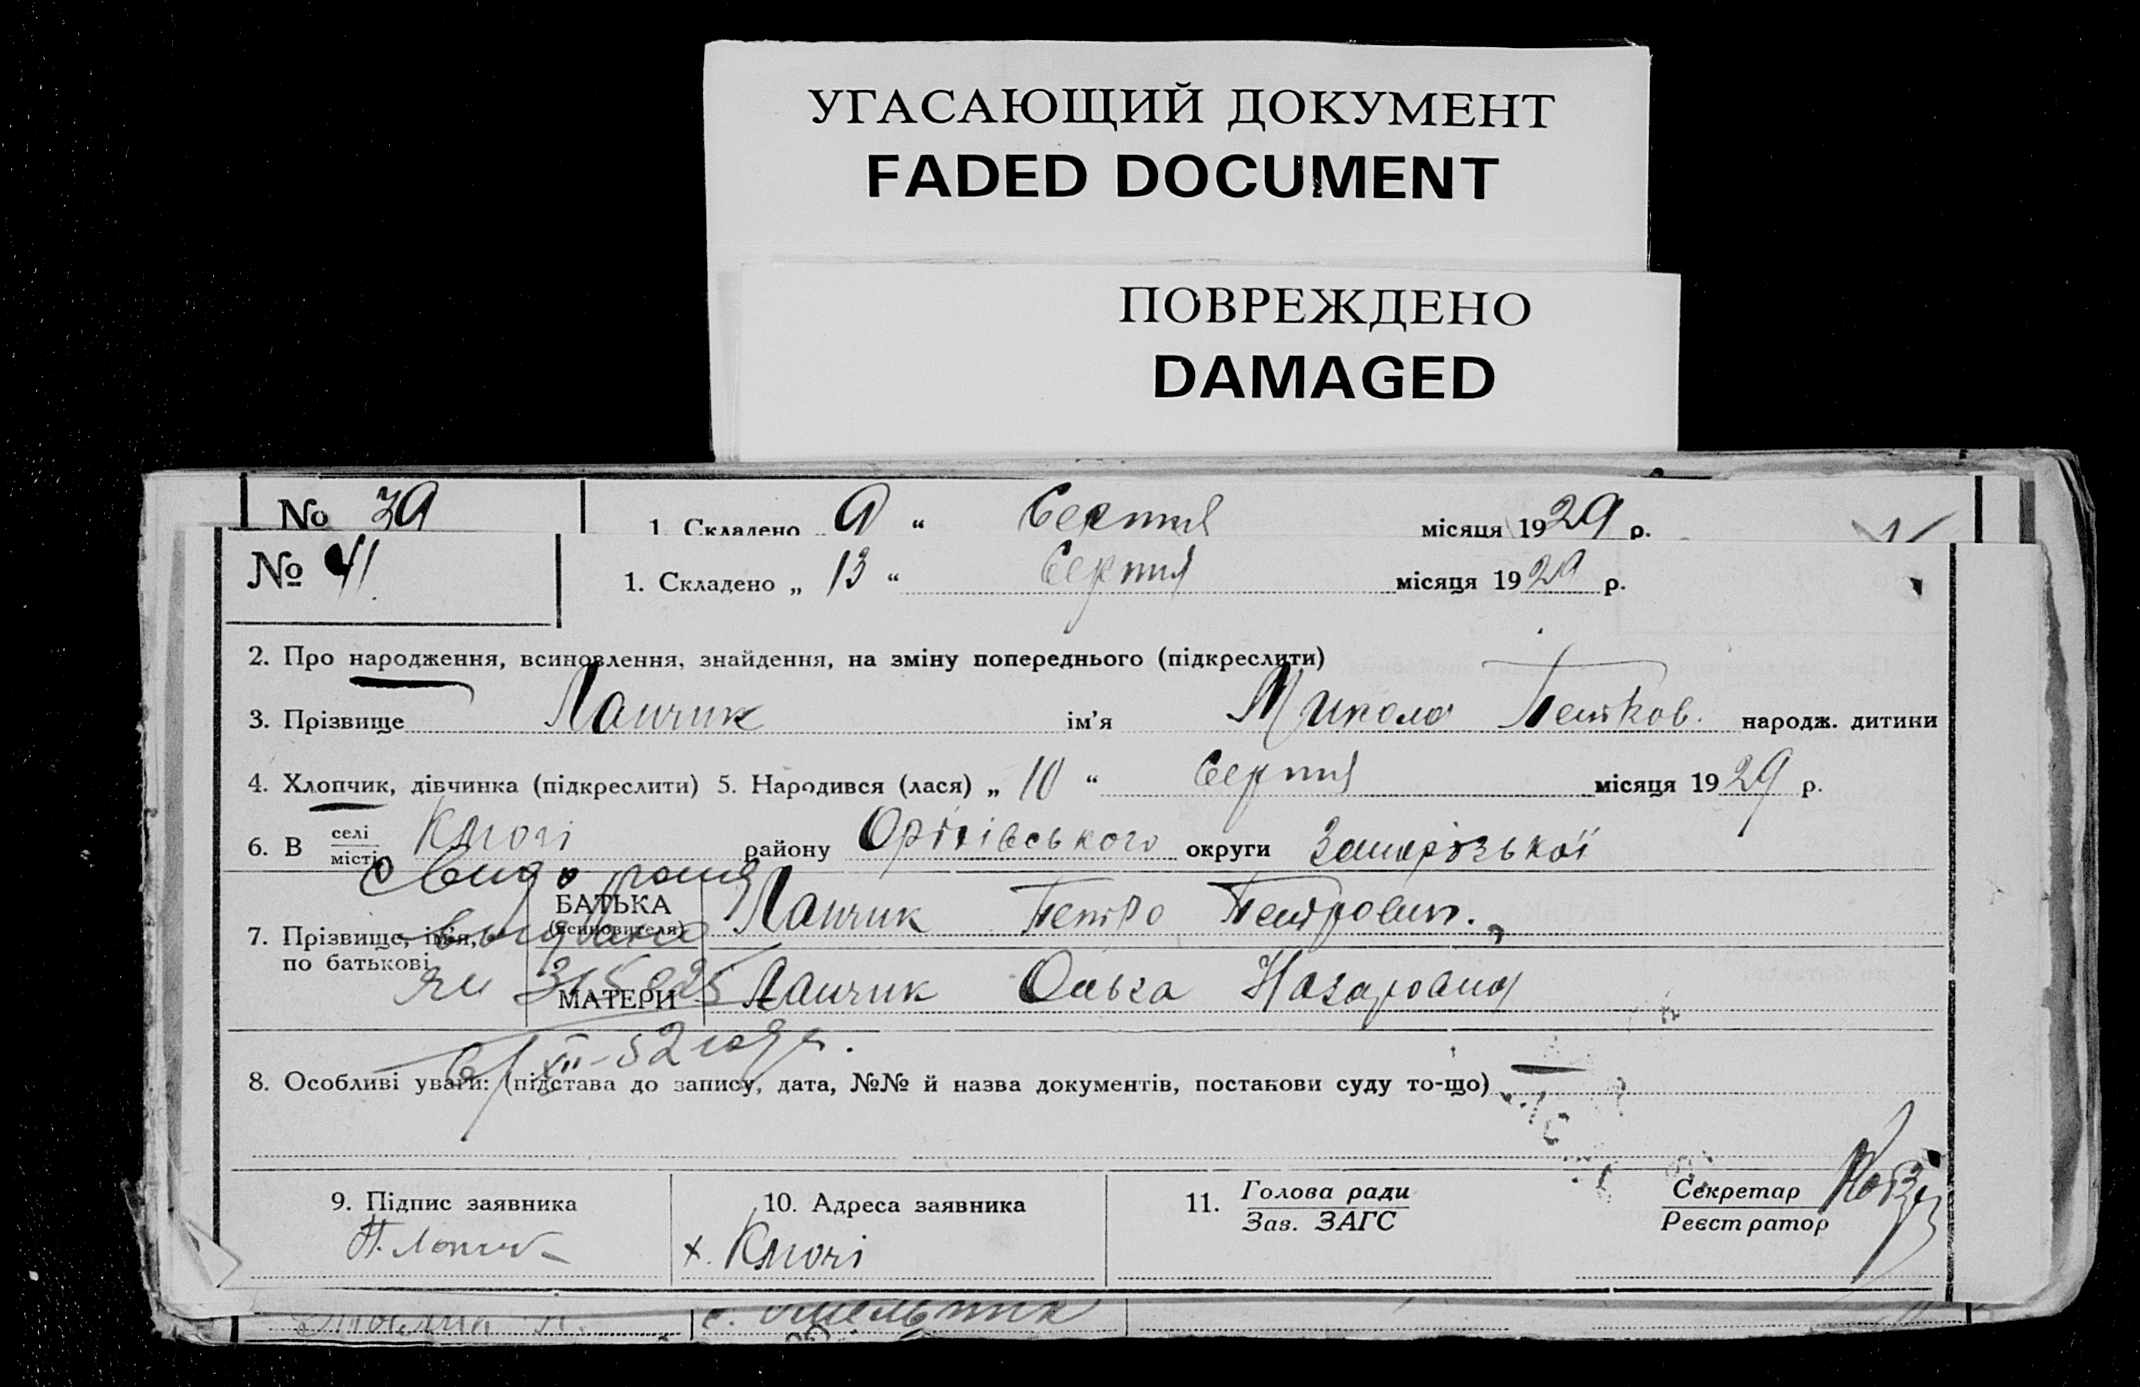 УГАСАЮЩИЙ ДОКУМЕНТ
FADED DOCUMENT
ПОВРЕЖДЕНО
DAMAGED
№ 39 1. Складено „ 9 “ Серпня місяця 1929 р.
№ 41 1. Складено „ 13 “ Серпня місяця 1929 р.
2. Про народження, всиновлення, знайдення, на зміну попереднього (підкреслити)
3. Прізвище Лапчик ім’я Микола народж. дитини
4. Хлопчик, дівчинка (підкреслити) 5. Народився (лася) „ 10 “ Серпня місяця 1929 р.
6. В селі
місті Ключі району Оріхівського округи Запорізької
7. Прізвище, ім’я, по батькові
БАТЬКА (всиновителя) Лапчик Петро Петрович.
МАТЕРИ Лапчик Ольга Назаровна
XII-52 года.
8. Особливі уваги: (підстава до запису, дата, №№ й назва документів, постанови суду то-що)
9. Підпис заявника 10. Адреса заявника 11. Голова ради
Зав. ЗАГС
Секретар
Реєстратор
П. Лапчик
х. Ключі